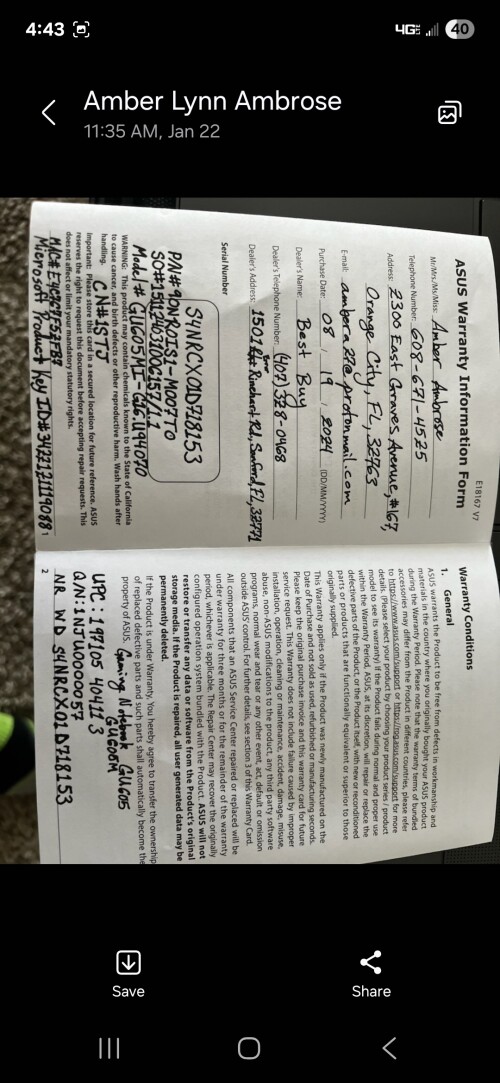 4:43
4G
40
Amber Lynn Ambrose
11:35 AM, Jan 22
E18167 V7
ASUS Warranty Information Form
Mr/Mrs/Ms/Miss: Amber Ambrose
Telephone Number: 608-671-4525
Address: 2300 East Graves Avenue, #167,
Orange City, FL, 32763
E-mail: @protonmail.com
Purchase Date: 08 / 19 / 2024 (DD/MM/YYYY)
Dealer's Name: Best Buy
Dealer's Telephone Number: (407) 328-0468
Dealer's Address: 1501 Rinehart Rd, Sanford, Fl, 32771
Serial Number
S4NRCX01D718153
Model# GU605MI-
WARNING: This product may contain chemicals known to the State of California
to cause cancer, and birth defects or other reproductive harm. Wash hands after
handling.
CN#:STJ
Important: Please store this card in a secured location for future reference. ASUS
reserves the right to request this document before accepting repair requests. This
does not affect or limit your mandatory statutory rights.
Microsoft Product Key ID#
1
Warranty Conditions
1. General
ASUS warrants the Product to be free from defects in workmanship and
materials in the country where you originally bought your ASUS product
during the Warranty Period. Please note that the warranty terms of bundled
accessories may differ from the Product in different countries, please refer
to https://www.asus.com/support or https://rog.asus.com/support for more
details. (Please select your product by choosing your product series / product
model to see its warranty) If the Product fails during normal and proper use
within the Warranty Period, ASUS, at its discretion, will repair or replace the
defective parts of the Product, or the Product itself, with new or reconditioned
parts or products that are functionally equivalent or superior to those
originally supplied.
This Warranty applies only if the Product was newly manufactured on the
Date of Purchase and not sold as used, refurbished or manufacturing seconds.
Please keep the original purchase invoice and this warranty card for future
service request. This Warranty does not include failure caused by improper
installation, operation, cleaning or maintenance, accident, damage, misuse,
abuse, non-ASUS modifications to the product, any third party software
programs, normal wear and tear or any other event, act, default or omission
outside ASUS' control. For further details, see section 3 of this Warranty Card.
All components that an ASUS Service Center repaired or replaced will be
under warranty for three months or for the remainder of the warranty
period, whichever is applicable. The Repair Center may recover the originally
configured and operation system bundled with the Product. ASUS will not
restore or transfer any data or software from the Product's original
storage media. If the Product is repaired, all user generated data may be
permanently deleted.
If the Product is under Warranty, You hereby agree to transfer the ownership
of replaced defective parts and such parts shall automatically become the
property of ASUS.
Gaming Notebook GU605
UPC: 197105 404113
Q/N: 1NJW0000057
NR WD S4NRCX01D718153
2
Save
Share